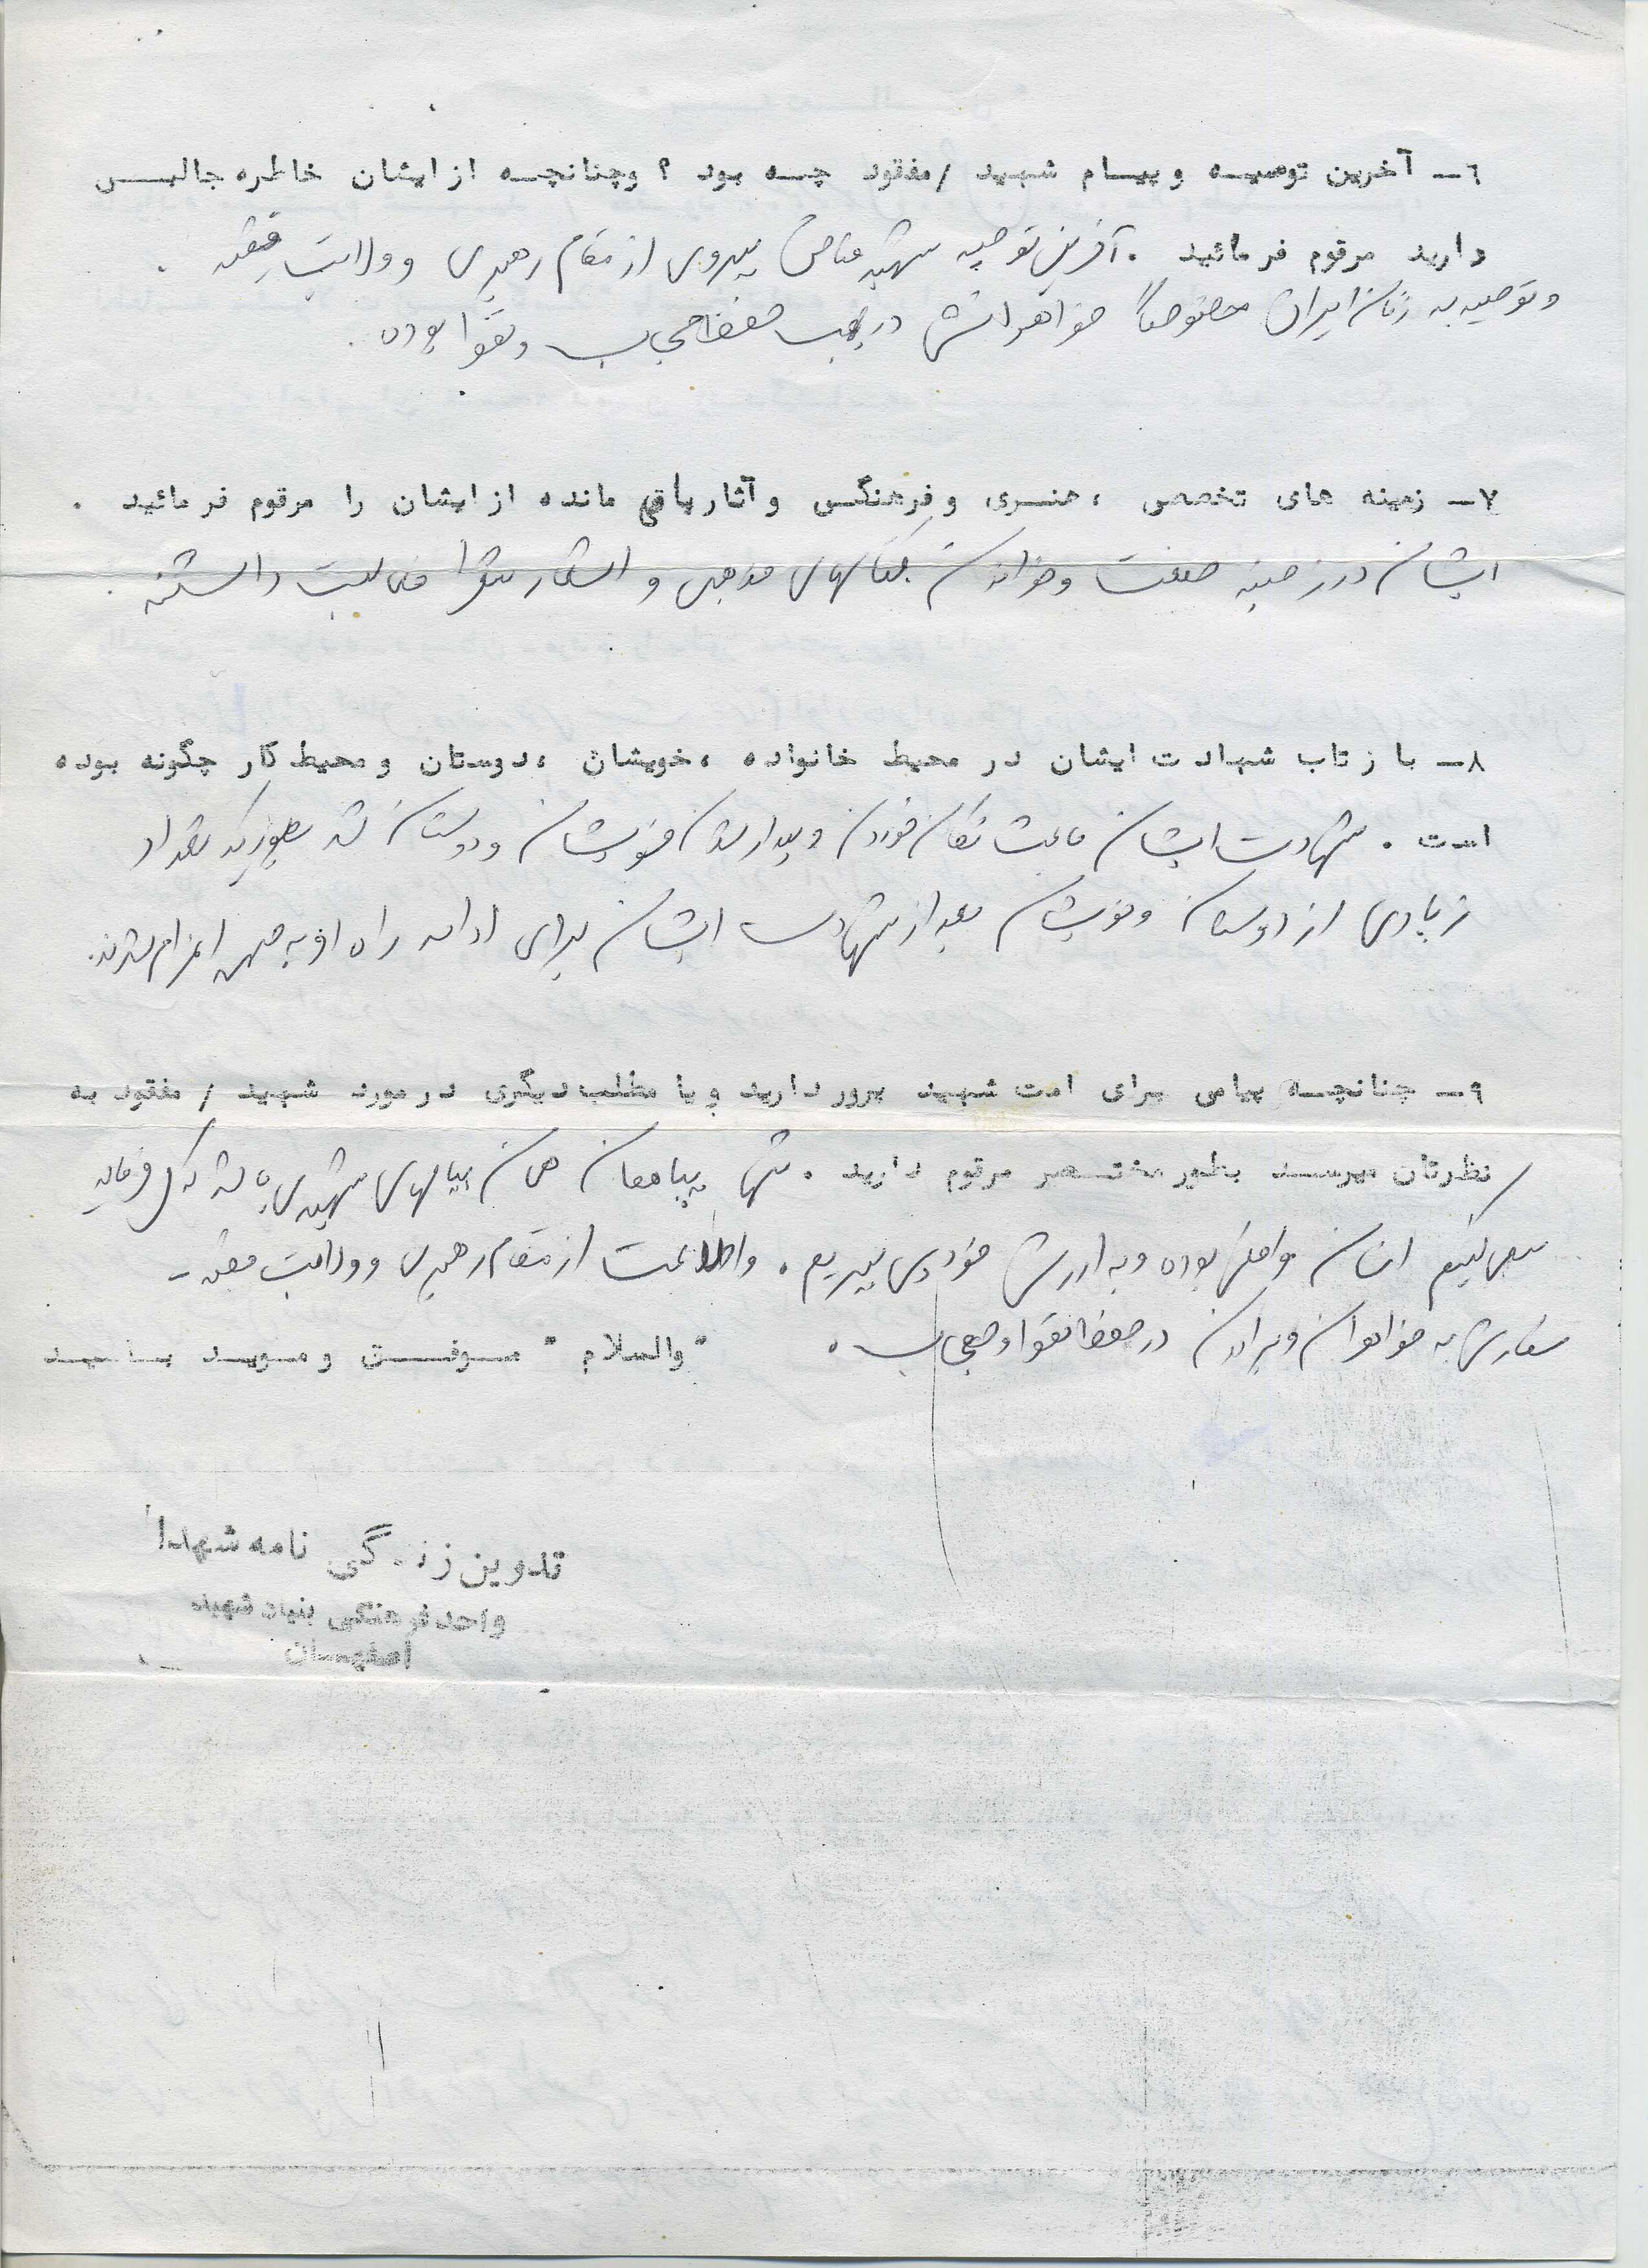 ٦ــ آخرین توصیه و پیام شهید / مفقود چه بود ؟ وچنانچه از ایشان خاطره جالبی
دارید مرقوم فرمائید . آخرین توصیه شهید پیروی از مقام رهبری و ولایت فقیه .
و توصیه به زنان ایران مخصوصاً خواهرانش در حفظ حجاب و تقوا بوده .
۷ــ زمینه های تخصصی ، هنری و فرهنگی و آثار باقی مانده از ایشان را مرقوم فرمائید .
ایشان در زمینه صنعت و خواندن کتابهای مذهبی و اشعار فعالیت داشتند .
۸ــ باز تاب شهادت ایشان در محیط خانواده ، خویشان ، دوستان و محیط کار چگونه بوده
است . شهادت ایشان باعث تکان خوردن و بیدار شدن خویشان و دوستان شد بطوریکه تعداد
زیادی از دوستان و خویشان بعد از شهادت ایشان برای ادامه راه او به جبهه اعزام شدند .
۹ــ چنانچه پیامی برای امت شهید پرور دارید و یا مطلب دیگری در مورد شهید / مفقود به
نظرتان میرسد بطور مختصر مرقوم دارید . تنها پیاممان همان پیامهای شهید می باشد که
سعی کنیم انسان بوده و به ارزش خود پی ببریم . و اطاعت از مقام رهبری و ولایت فقیه -
سفارش به خواهران و برادران در حفظ تقوا و حجاب . " والسلام " موفق و موید باشید
تدوین زندگی نامه شهدا
واحد فرهنگی بنیاد شهید
اصفهان